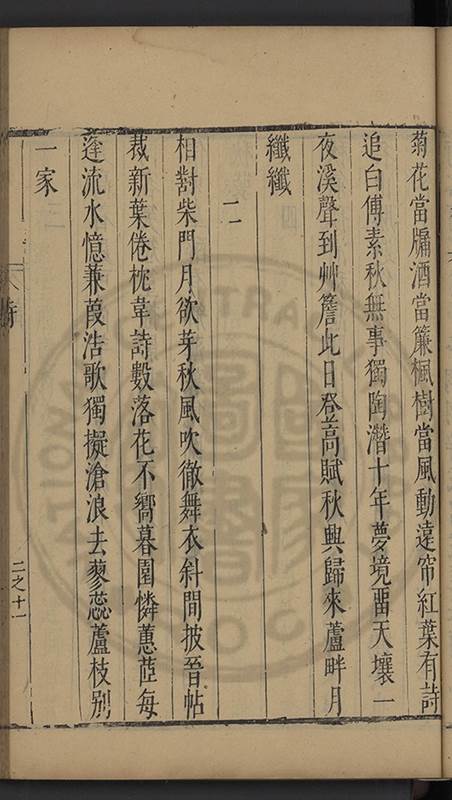 菊花當牖酒當簾楓樹當風動遠帘紅葉有詩
追白傅素秋無事獨陶潛十年夢境畱天壤一
夜溪聲到艸簷此日登高賦秋興歸來蘆畔月
纖纖
二
相對柴門月欲芽秋風吹徹舞衣斜間披晉帖
裁新葉倦枕韋詩數落花不嚮暮園憐蕙茝每
逢流水憶蒹葭浩歌獨擬滄浪去蓼蕊蘆枝別
一家
詩
二之十一